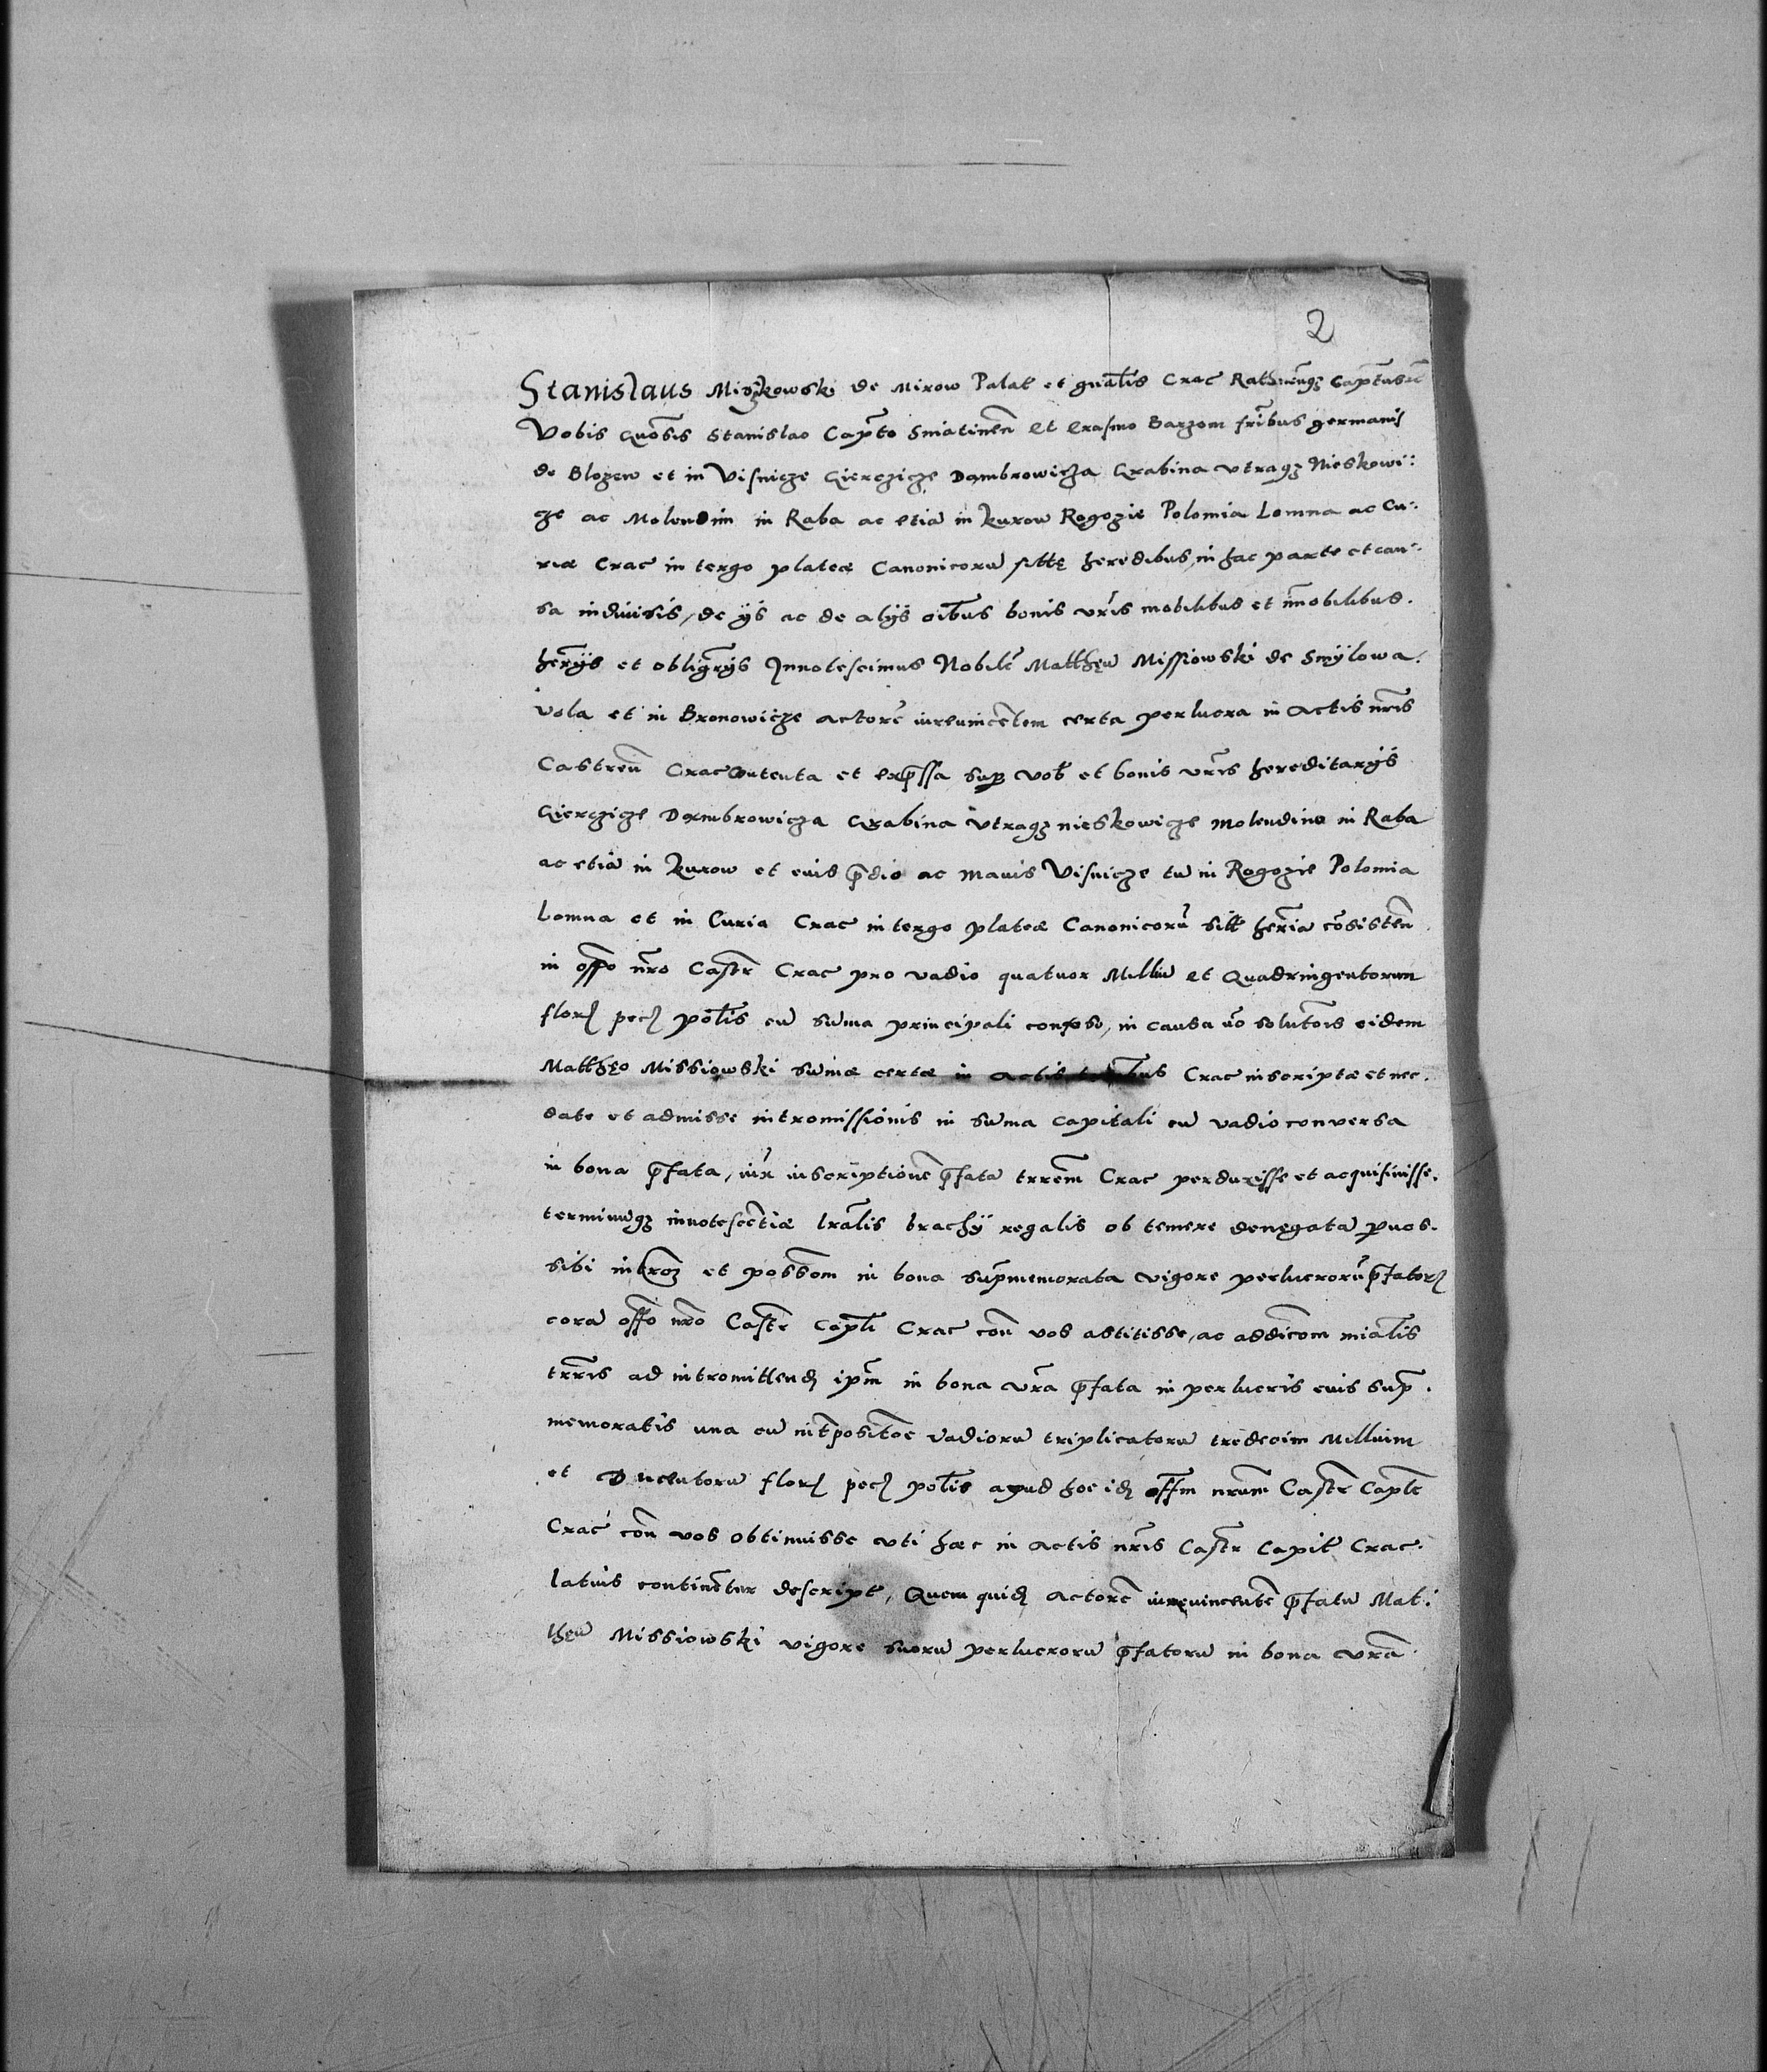 2
Stanislaus Miszkowski de Mirow Palat et gnãlis Crac Rathnẽnqz Capt̃us etc̃
Vobis Gnõsis Stanislao Capt̃o Sniatineñ Et Erasmo Barzom frĩbus germanis
de Blozew et in Visnicze Gierczicze Dambrowicza Grabina vtraqz Nieskowi:
cze ac Molendim in Raba ac etiã in kurow Rogozie Polomia Lomna ac Cu:
riæ Crac in tergo plateæ Canonicorũ heredibus, in hac parte et cau:
sa indiuisis, de ijs ac de alijs oĩbus bonis vrĩs mobilibus et im̃obilibus.
her̃ijs et obligr̃ijs Innotescimus Nobilẽ Matthęũ Missiowski de Smÿlowa.
vola et in Bronowicze actorẽ iureuincẽtem certa perlucra in actis nrĩs
Castreñ Crac contenta et exp̃ssa sup vob̃ et bonis vrĩs hereditarijs
Gierczicze Dambrowicza Grabina vtraqz nieskowicze molendino in Raba
ac etiã in kurow et euis p̃dio ac Mauis Visnicze tũ in Rogozie Polomia
Lomna et in Curia Crac in tergo plateæ Canonicorũ sitt̃ her̃ia cõsisteñ
in offo nr̃o Castr̃ Crac pro vadio quatuor Milliũ et Quadringentorum
flor pec pol̃is cũ sum̃a principali conposo, in causa nõ solutõis eidem
Matthęo Missiowski sum̃æ certæ in actis Crac inscriptæ et nec.
date et admisse intromissionis in sum̃a capitali cũ vadio conversa
in bona p̃fata, iux̃ inscriptionẽ p̃fatã trrẽm Crac perduxisse et acquisiuisse.
terminũqz innotescẽtiæ lrãlis brachij regalis ob temere denegatã p vos.
sibi intrõz et possom̃ in bona sup̃memorata vigore perlucrorũ p̃fator
corã offo nr̃o Castr̃ Capt̃li Crac coñ vos astitisse, ac addicõm mial̃is
trr̃is ad intromittend ipm̃ in bona vr̃a p̃fata in perlucris euis sup̃.
memoratis una cũ int̃positõe vadiorũ triplicatorũ tredecim Millium
et Ducentorũ flor pec pol̃is apud hoc id offm̃ nrũm Castr̃ Capt̃le
Crac coñ vos obtinuisse vti hæc in actis nrĩs Castr̃ Capit̃ Crac.
latius continẽtur descript, Quem quid actorẽ iureuincentẽ p̃fatũ Mat:
thęũ Missiowski vigore suorũ perlucrorũ p̃fatorũ in bona vrã